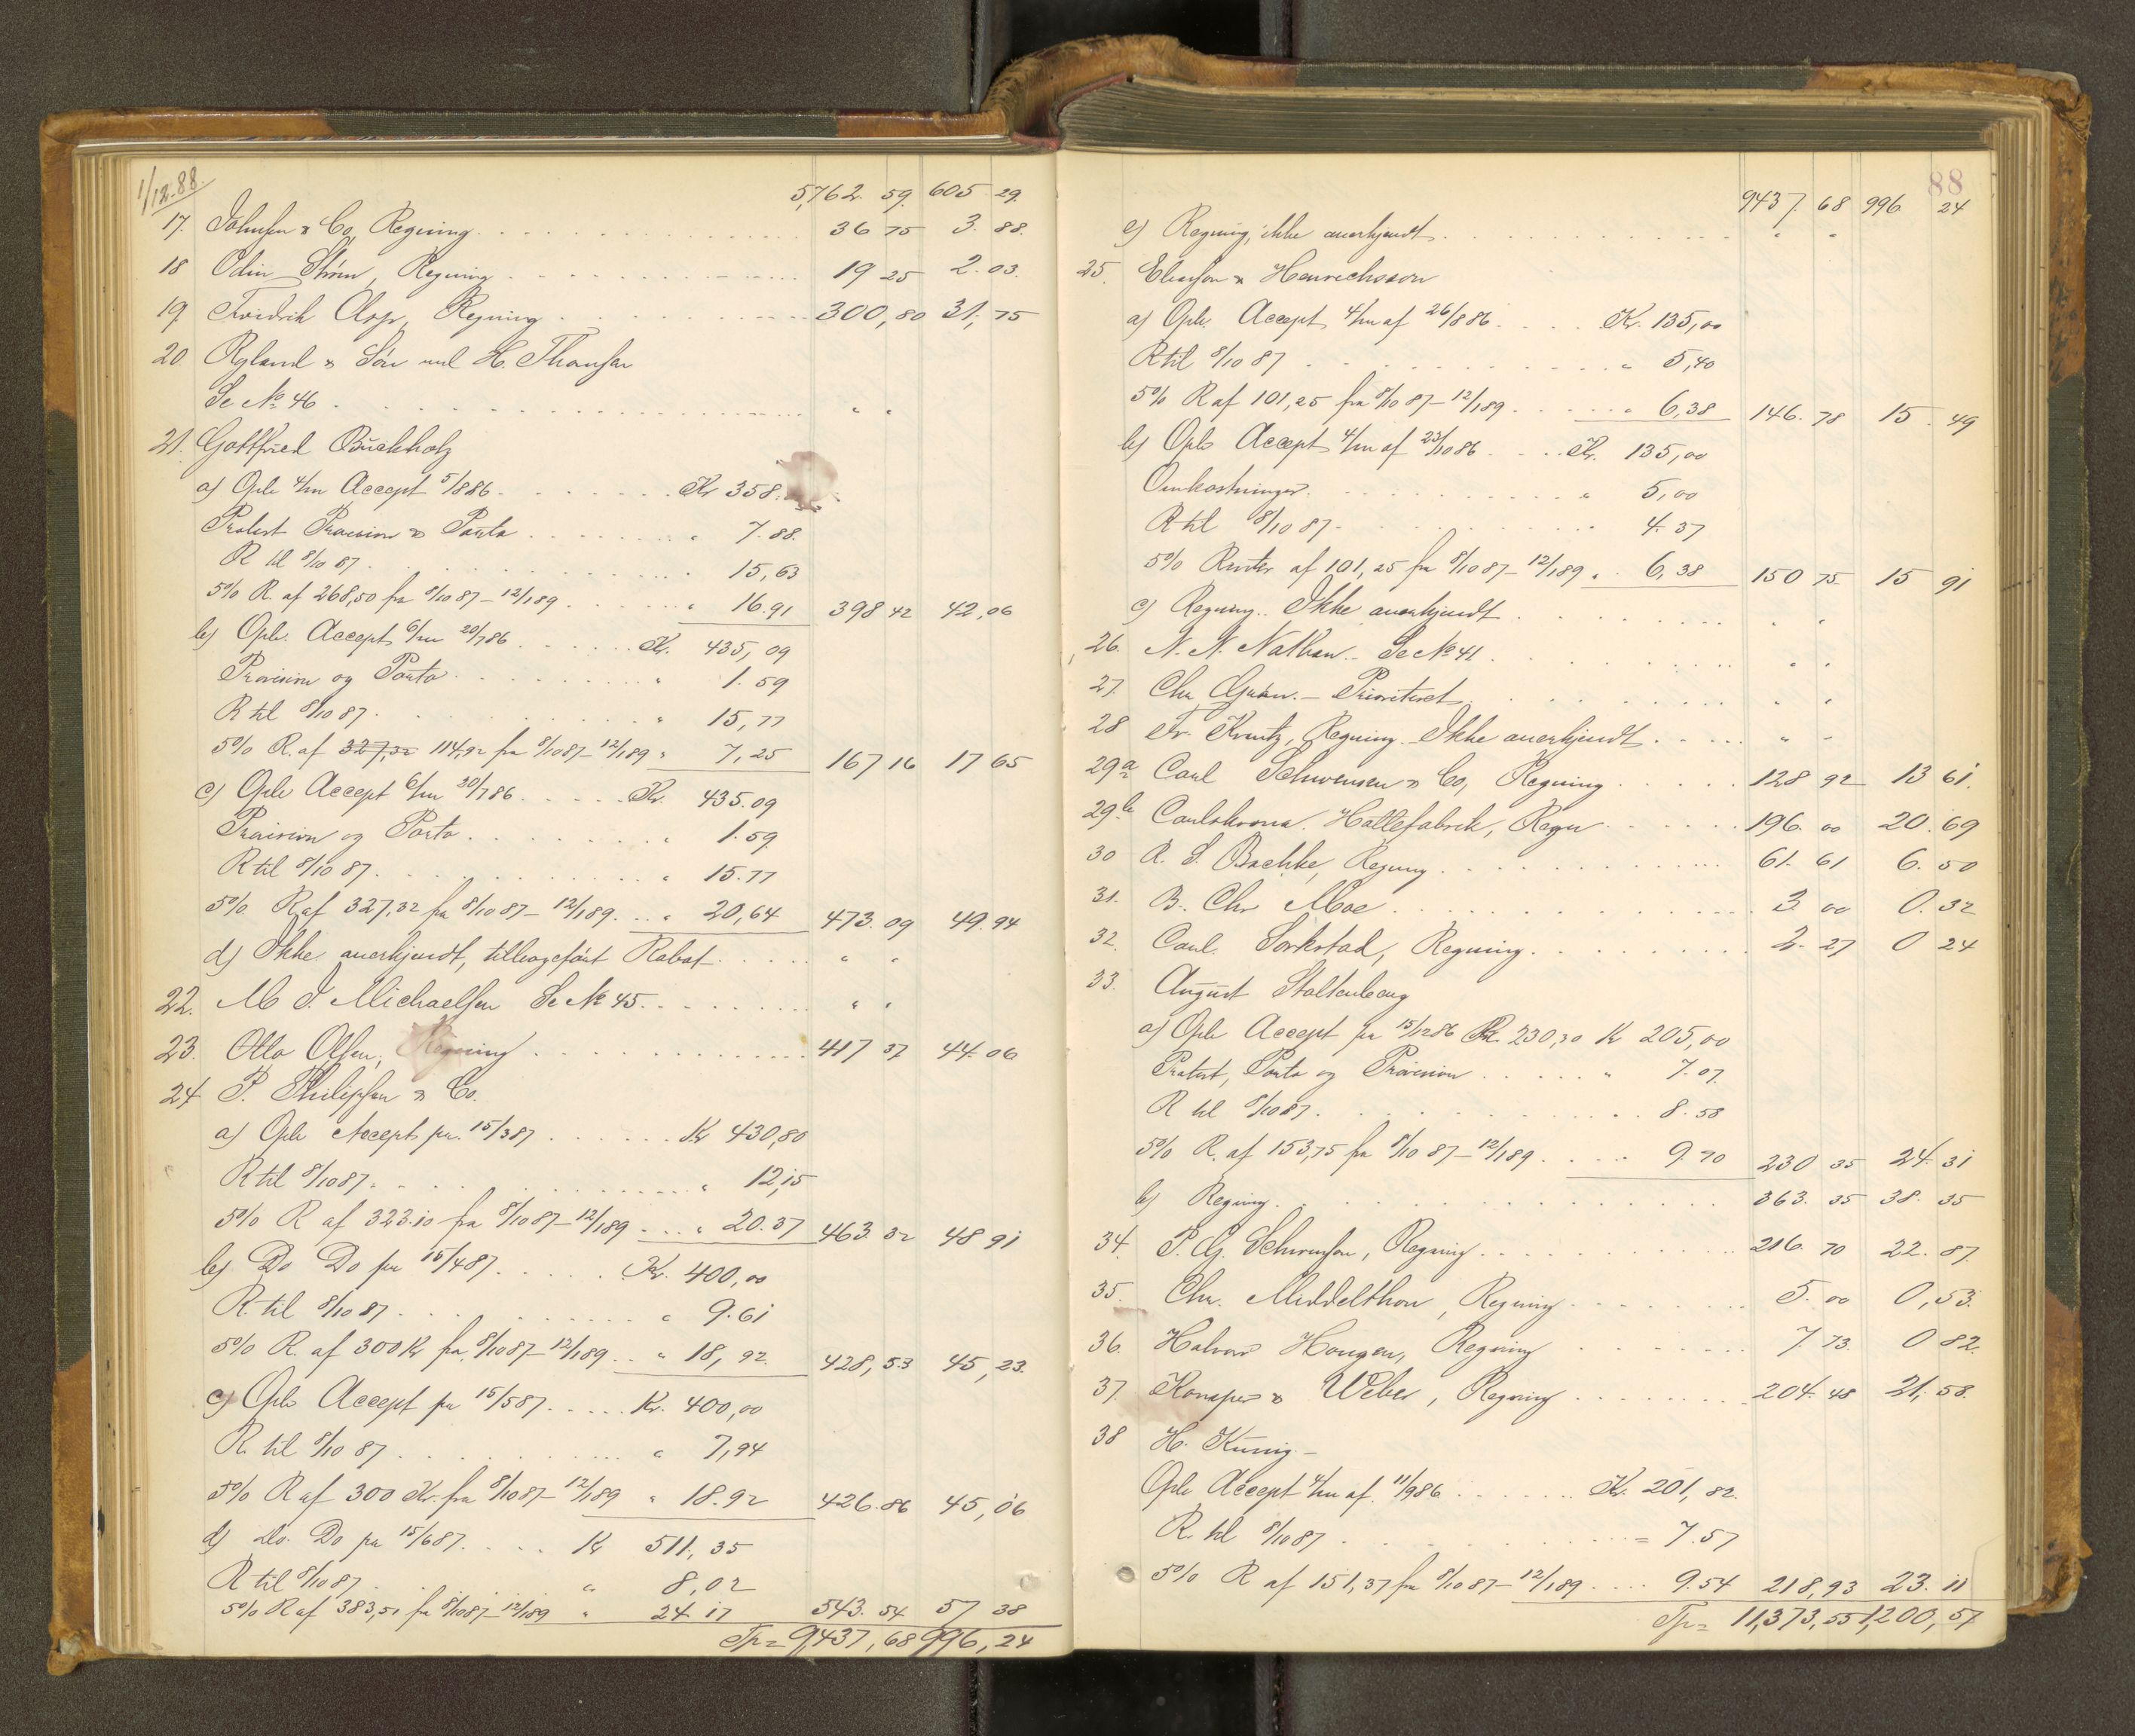 1/12.88.
5,762. 59. 605. 29.
17. Johnsen & Co, Regning 36 75 3. 88.
18 Odin Strøm, Regning 19 25 2. 03.
19. Fredrik Asp, Regning 300,80 31,75
20. Ryland & Søn ved H. Thomsen
Se No 46 " "
21. Gottfried Buckholz
a) Opr. 4/m Accept 5/8 86 Kr 358.
Protest Provision & Porto " 7.88.
R til 8/10 87 15,63
5% R. af 268,50 fra 8/10 87 - 12/1 89 " 16.91 398 42 42,06
b) Opr. Accept 6/m 20/7 86 Kr. 435,09
Provision og Porto " 1.59
R til 8/10 87 " 15,77
5% R. af 327,32 114,92 fra 8/10 87 - 12/1 89 " 7,25 167 16 17 65
c) Opr Accept 6/m 20/7 86 Kr. 435.09
Provision og Porto " 1.59
R til 8/10 87 " 15.77
5% R af 327,32 fra 8/10 87 - 12/1 89 " 20,64 473.09 49.94
d) Ikke anerkjendt, tilbageført Rabat " "
22. M J. Michaelsen Se No 45 " "
23. Otto Olsen, Regning 417 37 44.06
24 P. Philipsen & Co.
a) Opr Accept pr. 15/3 87 Kr 430,80
R til 8/10 87 " 12,15
5% R af 323.10 fra 8/10 87 - 12/1 89 " 20.37 463.32 48 91
b) Do Do pr 15/4 87 Kr. 400,00
R. til 8/10 87 " 9.61
5% R. af 300 Kr fra 8/10 87 - 12/1 89 " 18,92. 428,53 45,23.
c) Opr Accept pr 15/5 87 Kr. 400,00
R. til 8/10 87 " 7,94
5% R af 300 Kr. fra 8/10 87 - 12/1 89 " 18.92 426.86 45,06
d) Do. Do pr 15/6 87 Kr 511,35
R til 8/10 87 " 8,02
5% R af 383,51 fra 8/10 87 - 12/1 89 " 24 17 543.54 57 38
Tp= 9,437,68 996,24
88
9437.68 996 24
e) Regning, ikke anerkjendt " "
25. Eliassen & Henrichsson
a) Opr. Accept 4/m af 26/8 86 Kr. 135,00
R til 8/10 87 " 5,40
5% R af 101,25 fra 8/10 87 - 12/1 89 " 6,38 146.78 15.49
b) Opr Accept 4/m af 23/10 86 Kr. 135,00
Omkostninger " 5,00
R til 8/10 87 4.37
5% Renter af 101,25 fra 8/10 87 - 12/1 89 " 6,38 150 75 15 91
c) Regning. Ikke anerkjendt " "
26. N. N. Nathan - Se No 41 " "
27. Chr - Prioriteret " "
28 Fr. Krentz, Regning - Ikke anerkjendt " "
29a Carl Schwensen & Co, Regning 128 92 13 61.
29b Carlskrona Hattefabrik, Regn 196.00 20.69
30 A. S. Bachke, Regning 61.61 6.50
31. B. Chr Moe 3 00 0.32
32. Carl Sorkstad, Regning 2.27 0 24
33. August Stoltenberg
a) Opr Accept pr 15/12 86 Kr. 230,30 Kr 205,00
Protest, Porto og Provision " 7.07.
R til 8/10 87 8.58
5% R. af 153,75 fra 8/10 87 - 12/1 89 9.70 230 35 24.31
b) Regning 363.35 38.35
34. P. G. Schwensen, Regning 216.70 22.87.
35. Chr. Middelthon, Regning 5.00 0,53.
36. Halvor Haugen, Regning 7.73. 0 82.
37. & Weber, Regning 204.48 21.58.
38 H. König -
Opr Accept 4/m af 11/9 86 Kr. 201,82.
R. til 8/10 87 = 7.57
5% R af 151,37 fra 8/10 87 - 12/1 89 9.54 218,93 23.11
Tp= 11,373,55 1,200,57